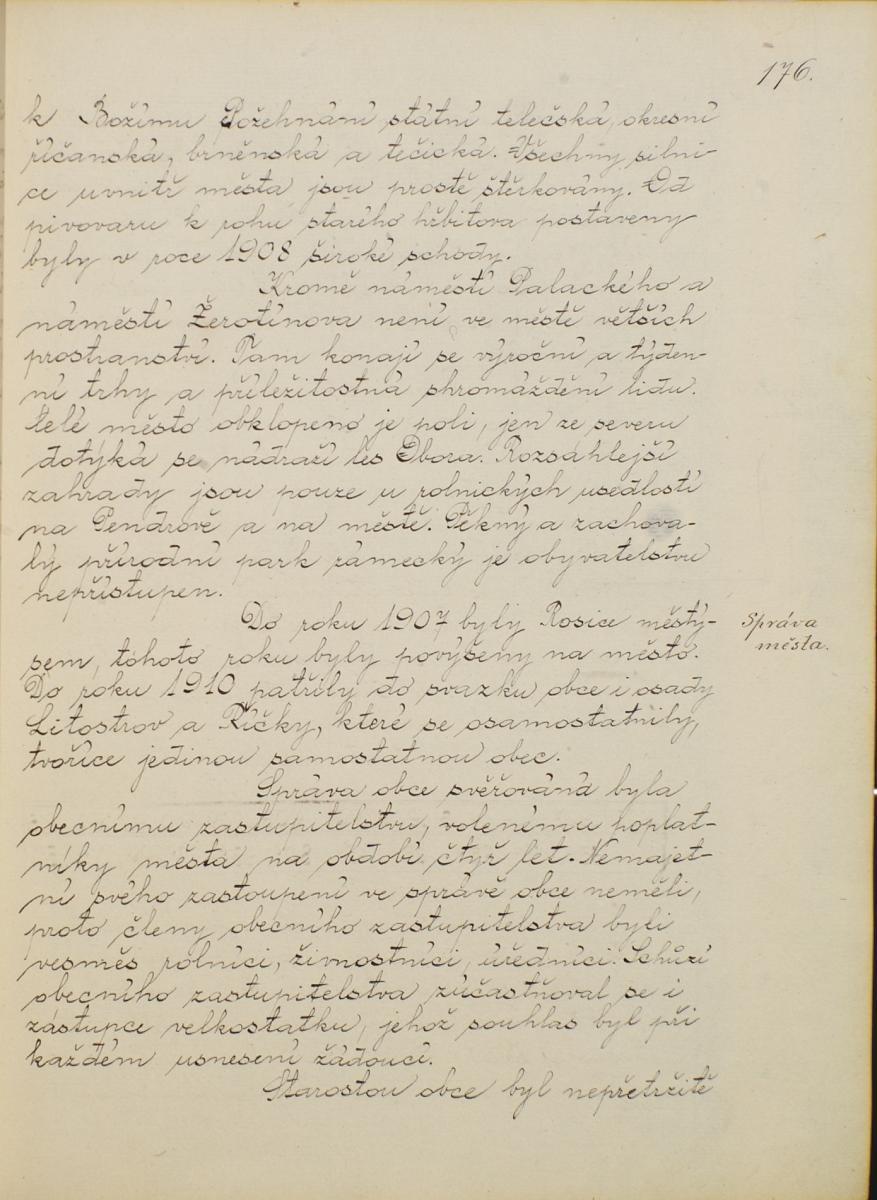 176.
k Božímu Požehnání státní telečská, okresní
říčanská, brněnská a tečická. Všechny silni-
ce uvnitř města jsou prostě štěrkovány. Od
pivovaru k rohu starého hřbitova postaveny
byly v roce 1908 široké schody.
Kromě náměstí Palackého a
náměstí Žerotínova není ve městě větších
prostranství. Tam konají se výroční a týden-
ní trhy a příležitostná shromáždění lidu.
Celé město obklopeno je poli, jen ze severu
dotýká se nádraží les Obora. Rozsáhlejší
zahrady jsou pouze u rolnických usedlostí
na Pendrově a na městě. Pěkný a zachova-
lý přírodní park zámecký je obyvatelstvu
nepřístupen.
Do roku 1907 byly Rosice městy-
sem, tohoto roku byly povýšeny na město.
Do roku 1910 patřily do svazku obce i osady
Litostrov a Říčky, které se osamostatnily,
tvoříce jedinou samostatnou obec.
Správa
města.
Správa obce svěřována byla
obecnímu zastupitelstvu, volenému poplat-
níky města na období čtyř let. Nemajet-
ní svého zastoupení ve správě obce neměli,
proto členy obecního zastupitelstva byli
vesměs rolníci, živnostníci, úředníci. Schůzí
obecního zastupitelstva zúčastňoval se i
zástupce velkostatku, jehož souhlas byl při
každém usnesení žádoucí.
Starostou obce byl nepřetržitě